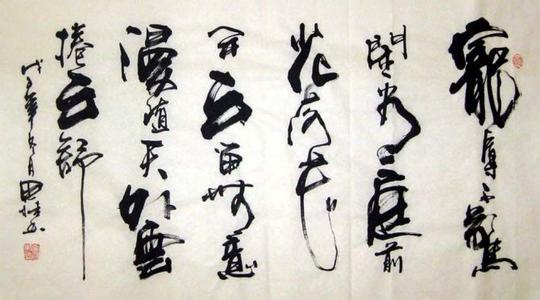 寵辱不驚
閒看庭前
花開花
落去留無意
漫隨天外雲
捲云舒
戊子年冬月